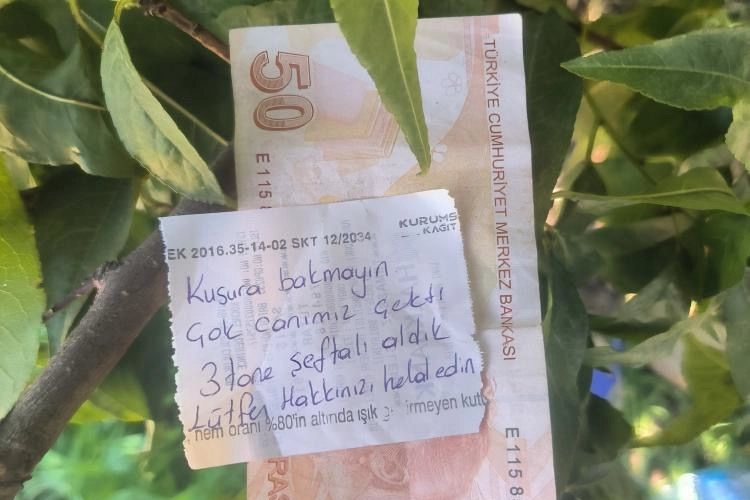 50
TÜRKİYE CUMHURİYET MERKEZ BANKASI
E 115 8
KURUMS
KAĞIT
EK 2016.35-14-02 SKT 12/2034
Kusura bakmayın
Çok canımız çekti
3 tane şeftali aldık
Lütfen Hakkınızı helal edin
nem oranı %80'in altında ışık
E 115 8